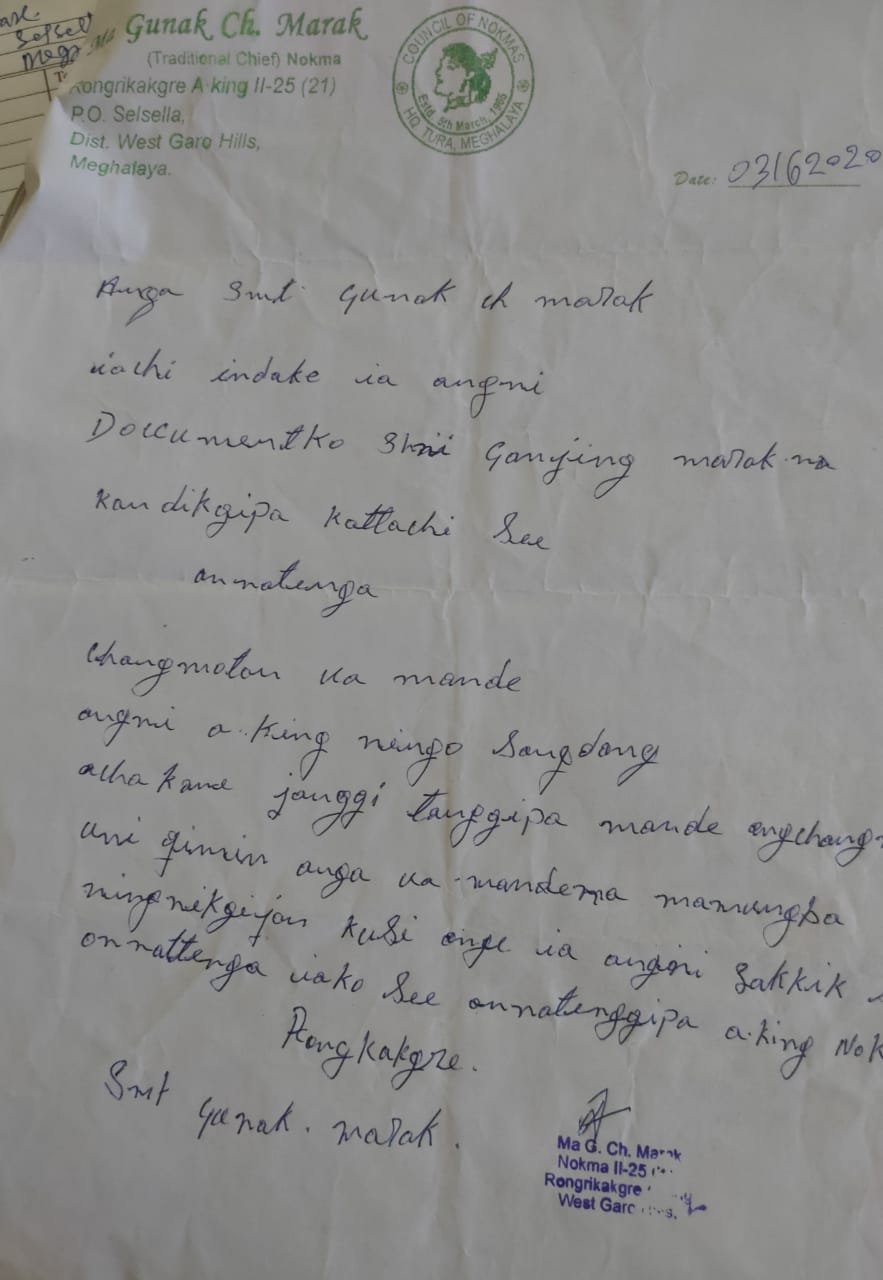 Selsel
Ma Gunak Ch. Marak
(Traditional Chief) Nokma
Rongrikakgre A·king II-25 (21)
P.O. Selsella,
Dist. West Garo Hills,
Meghalaya.
COUNCIL OF NOKMAS
Estd. 5th March, 1965
HQ. TURA, MEGHALAYA
Date: 03162020
Anga Smt. Gunak ch marak
iachi indake ia angni
Documentko Shri Ganjing marak.na
kan dikgipa kattachi See
onnatenga
Changmotan ua mande
angni a·king ningo Songdong
acha kame janggi tanggipa mande
uni gimin anga ua mandena mamungba
ningnikgijan kusi onge ia angni Sakkik
onnattenga iako See onnatenggipa a·king Nok
Rongkakgre.
Smt
Gunak. marak.
Ma G. Ch. Marak
Nokma II-25
Rongrikakgre
West Garo